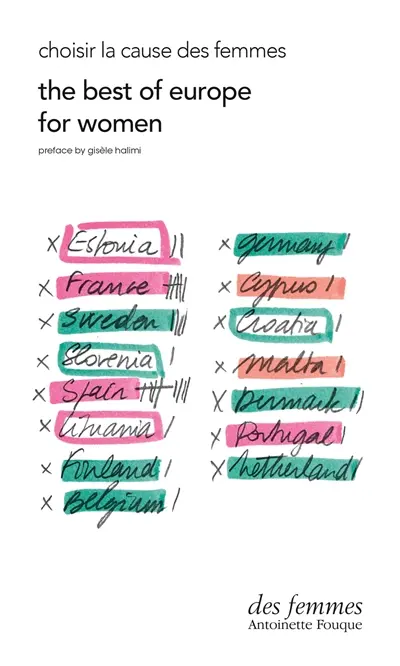 choisir la cause des femmes
the best of europe
for women
preface by gisèle halimi
x Estonia
x France
x Sweden
x Slovenia
x Spain
x Lituania
x Finland
x Belgium
x Germany
x Cyprus
x Croatia
x Malta
x Denmark
x Portugal
x Netherland
des femmes
Antoinette Fouque